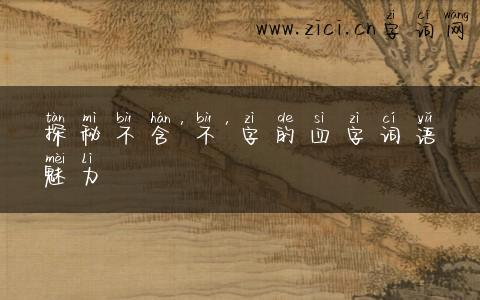 zì cí wǎng
www.zici.cn字词网
tàn mì bù hán, bù, zì de sì zì cí yǔ
探秘不含 不 字的四字词语
mèi lì
魅力